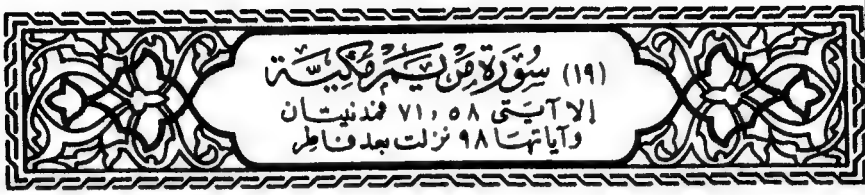 (١٩) سُوَرَةِ مَرْيَم مَكِيَّة
إلا آيتى ٥٨ و ٧١ فمدنيتان
وآياتها ٩٨ نزلت بعد فاطر